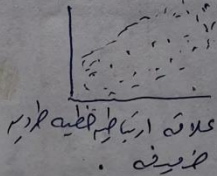 علاقة ارتباطيه خطيه طرديه
ضعيفه .